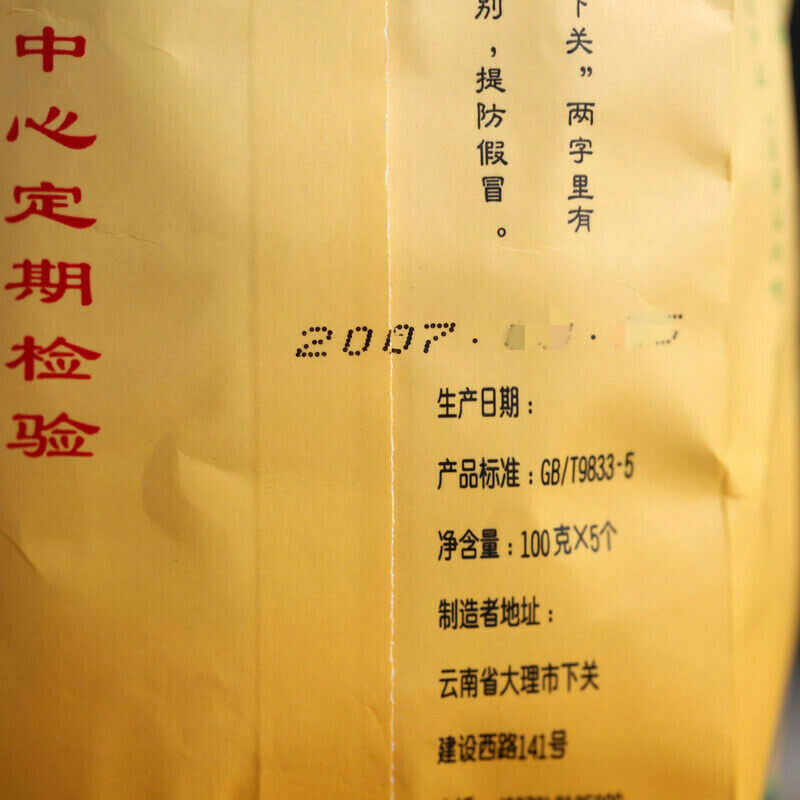 中心定期检验
下关”两字里有
别，提防假冒。
2007.
生产日期：
产品标准：GB/T9833-5
净含量：100克×5个
制造者地址：
云南省大理市下关
建设西路141号